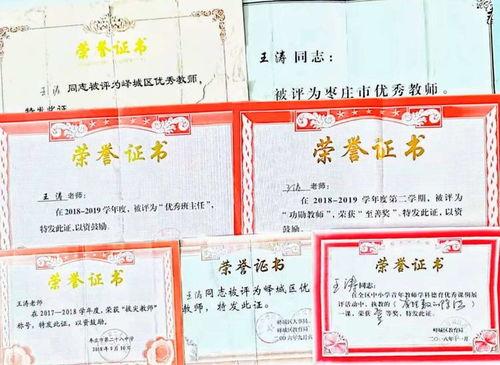 荣誉证书
王涛
同志被评为峄城区优秀教师,
特发此证
王涛同志:
被评为枣庄市优秀教师。
荣誉证书
王涛老师:
在2018-2019学年度,被评
为“优秀班主任”,
特发此证,以资鼓励。
荣誉证书
王涛老师:
在2018-2019学年度第二学期,被评为
“功勋教师”,荣获“至善奖”,特发此证,以资
鼓励。
荣誉证书
王涛老师
在2017-2018学年度,荣获“拔尖教师”
称号,特发此证,以资鼓励。
枣庄市第二十八中学
2018年9月10日
荣誉证书
王涛同志被评为峄城区优秀
教师,特发此证。
峄城区人事局
峄城区教育局
二〇〇六年九月
荣誉证书
王涛同志:
在全区中小学青年教师学科德育优秀课例展
评活动中,执教的《
》
一课,荣获
等奖,特发此证。
峄城区教育局